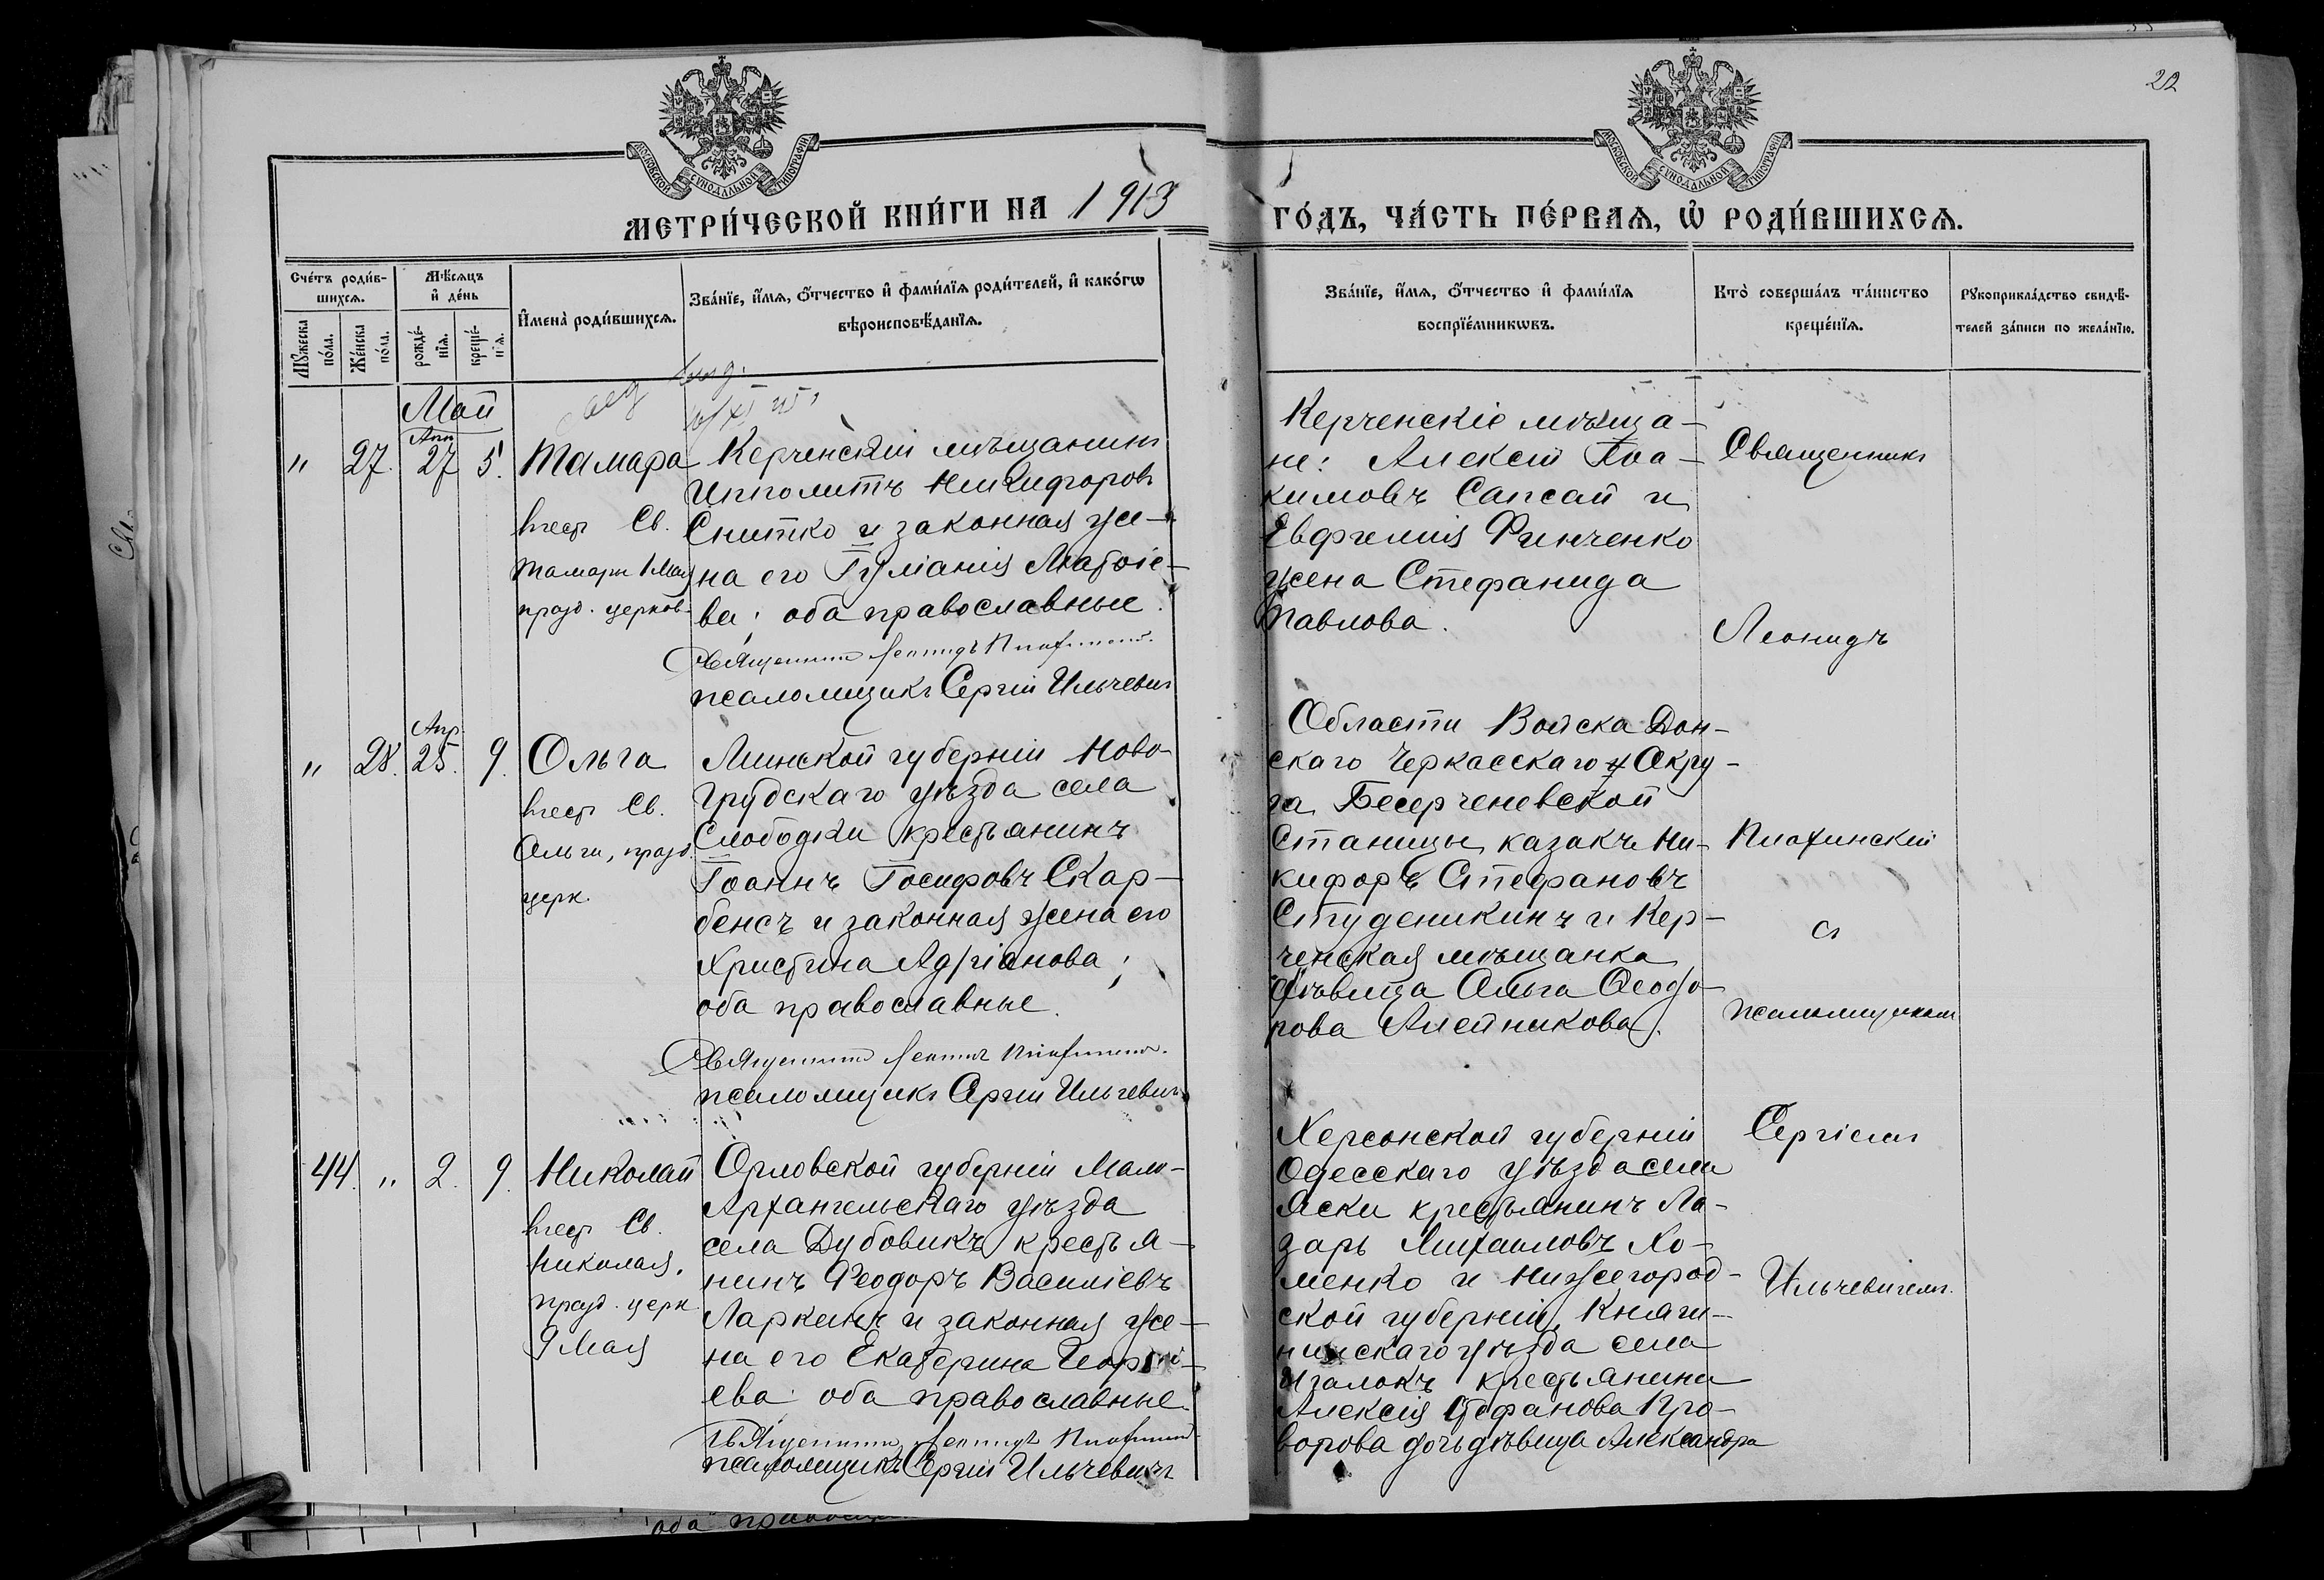 22
МОСКОВСКОЙ СѴНОДАЛЬНОЙ ТИПОГРАФІИ
МОСКОВСКОЙ СѴНОДАЛЬНОЙ ТИПОГРАФІИ
МЕТРИ́ЧЕСКОЙ КНИ́ГИ НА 1913
ГО́ДЪ, ЧА́СТЬ ПЕ́РВАѦ, Ѡ҆ РОДИ́ВШИХСѦ.
Сче́тъ роди́в-
шихсѧ.
Мꙋ́жеска
по́ла.
Же́нска
по́ла.
Мѣ́сѧцъ
и҆ де́нь
рожде́-
нїѧ.
креще́-
нїѧ.
И҆мена̀ роди́вшихсѧ.
Зва́нїе, и҆́мѧ, ѻ҆́тчество и҆ фами́лїѧ роди́телей, и҆ како́гѡ
вѣроисповѣ́данїѧ.
Зва́нїе, и҆́мѧ, ѻ҆́тчество и҆ фами́лїѧ
воспрїе́мникѡвъ.
Кто̀ соверша́лъ та́инство
креще́нїѧ.
Рꙋкоприкла́дство свидѣ́-
телей за́писи по жела́нїю.
Май
" 27. Апр 27 5.
Тамара
Св.
Тамары 1 Мая
празд. церков.
Керченскій мѣщанинъ
Ипполитъ Никифоровъ
Снитко и законная же-
на его Іуліанія Матѳіе-
ва; оба православные.
Священникъ Леонидъ
псаломщикъ Сергій Ильчевичъ
Керченскіе мѣща-
не: Алексій Іоа-
кимовъ Сапсай и
Евфимія Финченко
жена Стефанида
Павлова.
Священникъ
Леонидъ
" 28. Апр 25. 9.
Ольга
Св.
Ольги, празд.
церк.
Минской губерніи Ново-
грудскаго уѣзда села
Слободки крестьянинъ
Іоаннъ Іосифовъ Скар-
бенсъ и законная жена его
Христина Адріанова;
оба православные.
Священникъ Леонидъ
псаломщикъ Сергій Ильчевичъ
Области Войска Дон-
скаго Черкасскаго Окру-
га Бесергеневской
Станицы казакъ Ни-
кифоръ Стефановъ
Студеникинъ и Кер-
ченская мѣщанка
дѣвица Ольга Ѳеодо-
рова Алейникова.
съ
псаломщикомъ
44. " 2. 9.
Николай
Св.
Николая,
празд. церк.
9 Мая
Орловской губерніи Мало-
Архангельскаго уѣзда
села Дубовикъ крестья-
нинъ Ѳеодоръ Василіевъ
Ларкинъ и законная же-
на его Екатерина Георгі-
ева оба православные.
Священникъ Леонидъ
псаломщикъ Сергій Ильчевичъ
Херсонской губерніи
Одесскаго уѣзда села
Яски крестьянинъ Ла-
зарь Михаиловъ Хо-
менко и Нижегород-
ской губерніи, Княги-
нинскаго уѣзда села
крестьянина
Алексія Стефанова
дочь дѣвица Александра
Сергіемъ
Ильчевичемъ.
оба